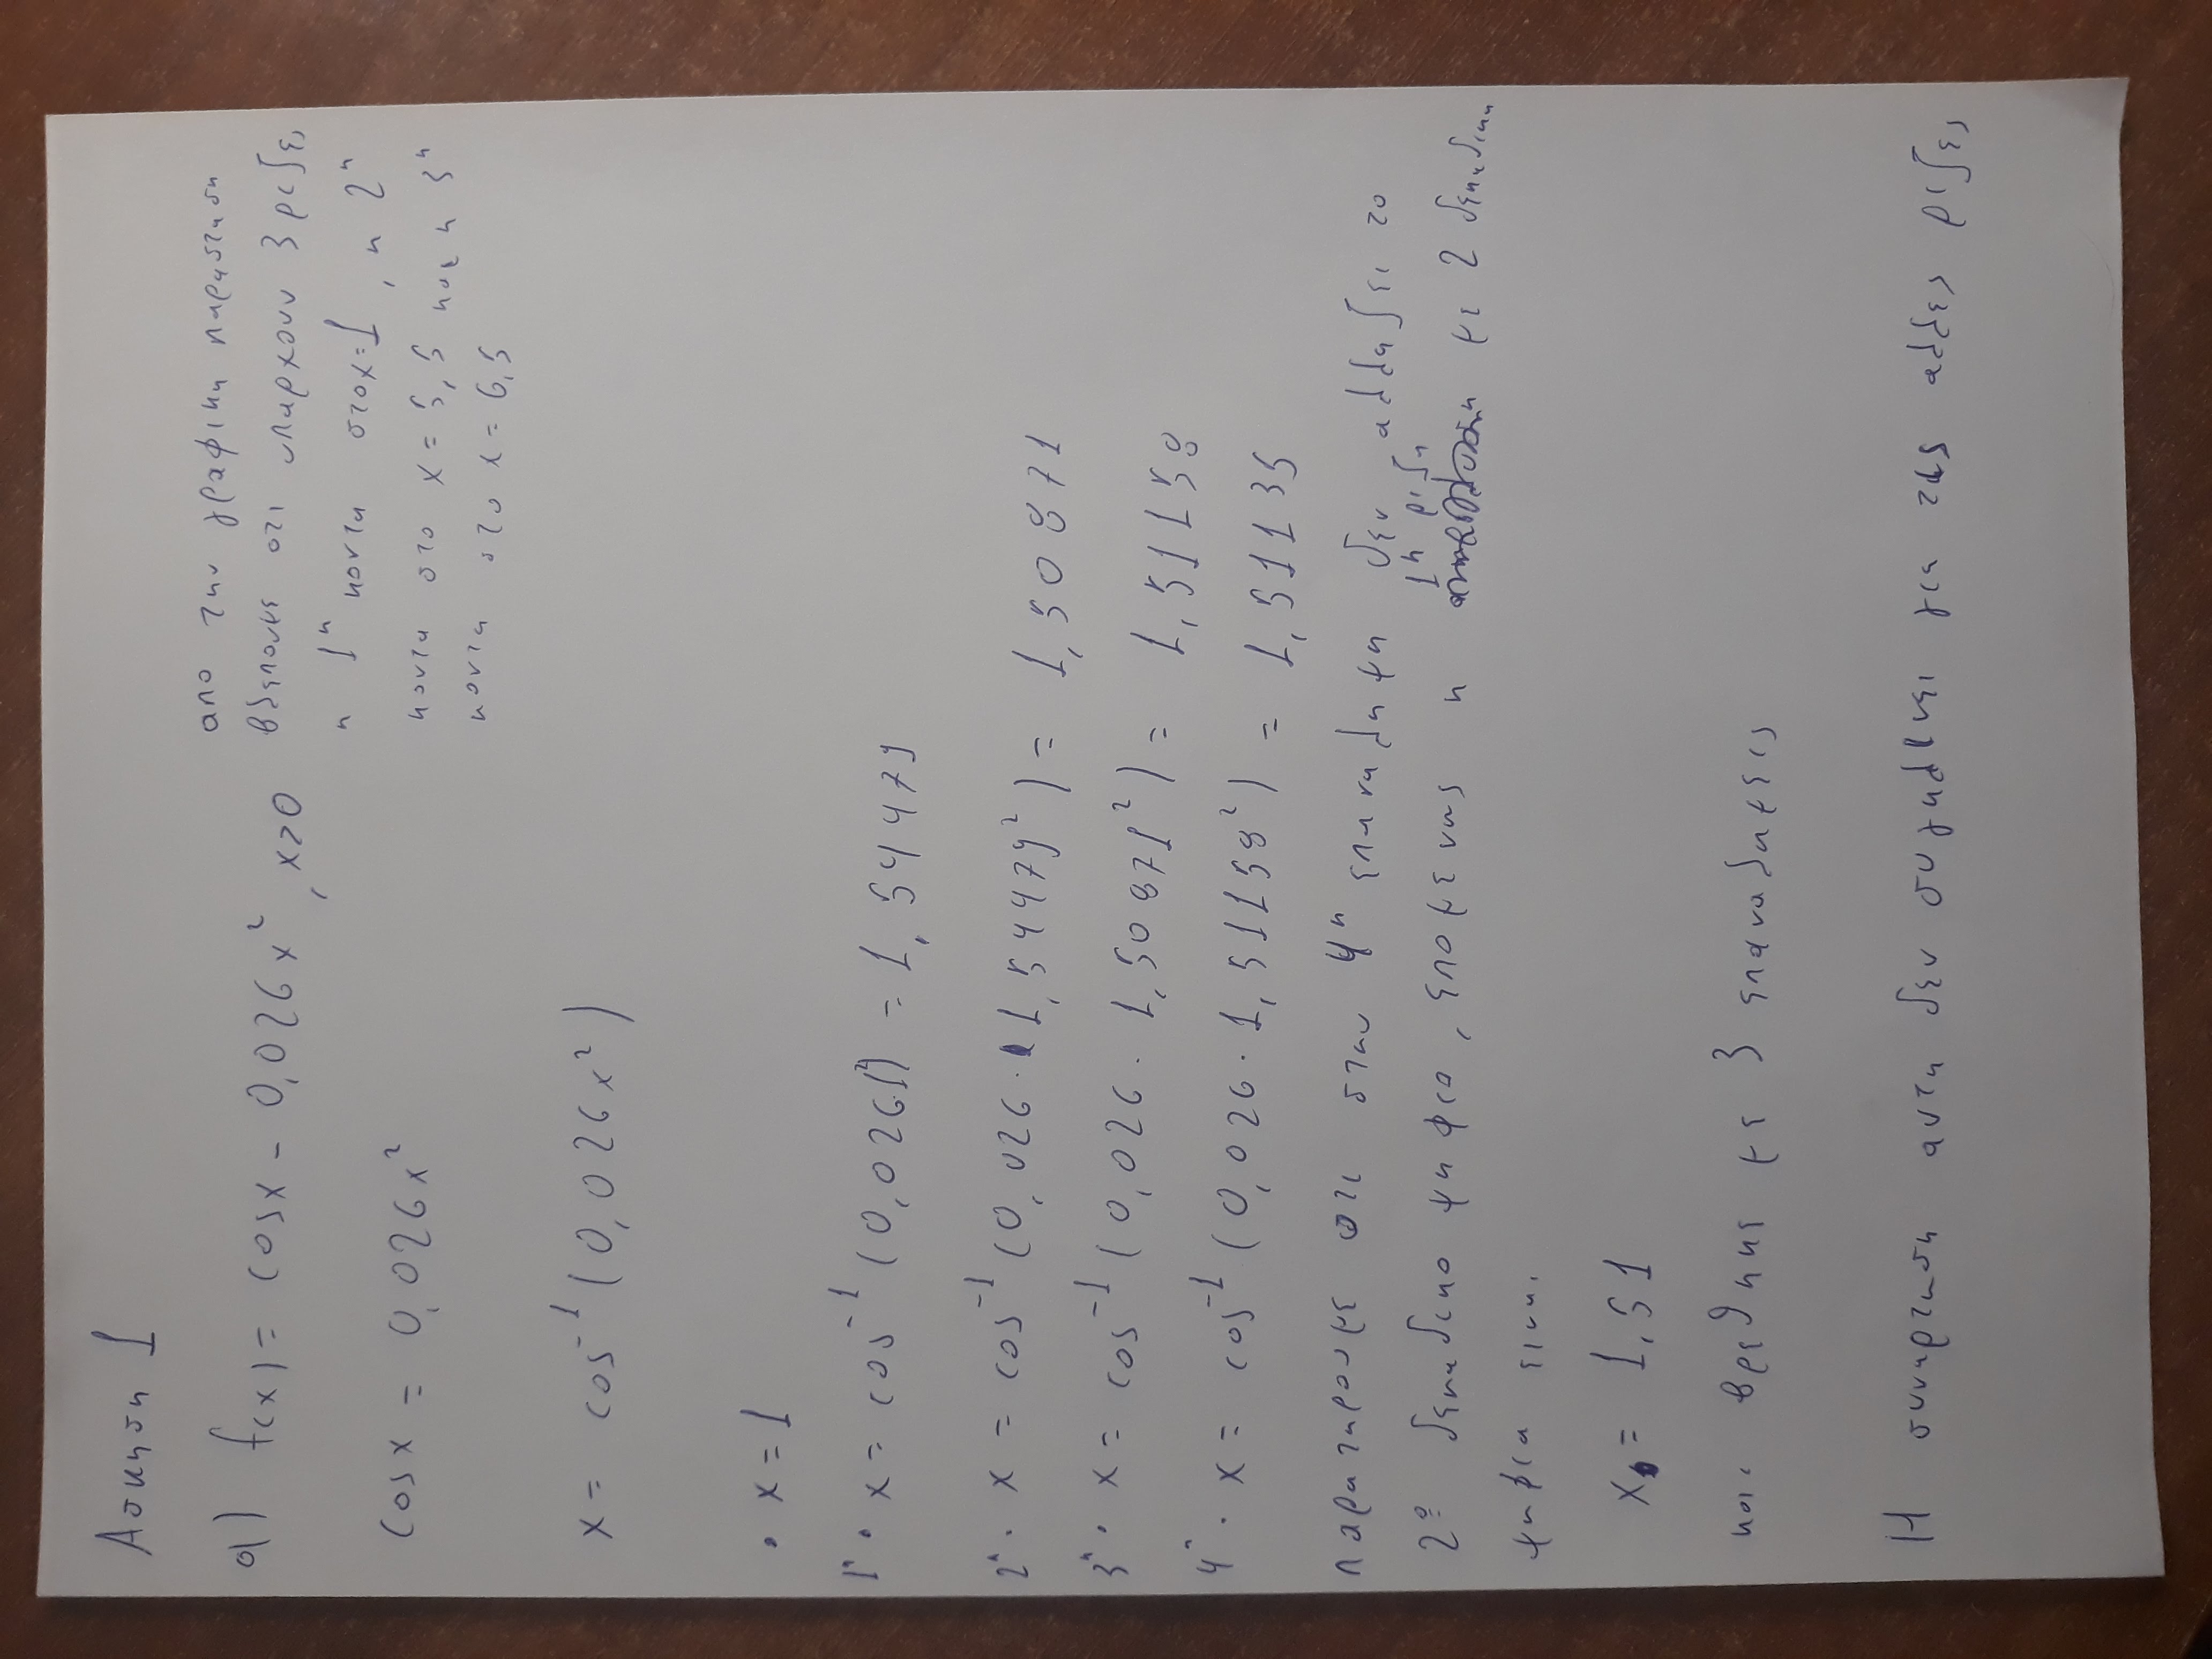 Ασκηση 1
α) f(x) = cosx - 0,026x², x>0
απο την γραφικη παρασταση
βλεπουμε οτι υπαρχουν 3 ριζες
η 1η κοντα στο x=1, η 2η
κοντα στο x = 5,5 και η 3η
κοντα στο x = 6,5
cosx = 0,026x²
x = cos⁻¹(0,026x²)
• x = 1
1η • x = cos⁻¹(0,026·1²) = 1,54479
2η • x = cos⁻¹(0,026·1,54479²) = 1,50871
3η • x = cos⁻¹(0,026·1,50871²) = 1,51158
4η • x = cos⁻¹(0,026·1,51158²) = 1,51135
παρατηρουμε οτι στην 4η επαναληψη δεν αλλαζει το
2ο δεκαδικο ψηφιο, επομενως η 1η ριζη με 2 δεκαδικα
ψηφια ειναι
x = 1,51
και βρεθηκε με 3 επαναληψεις
Η συναρτηση αυτη δεν συγκλινει για τις αλλες ριζες